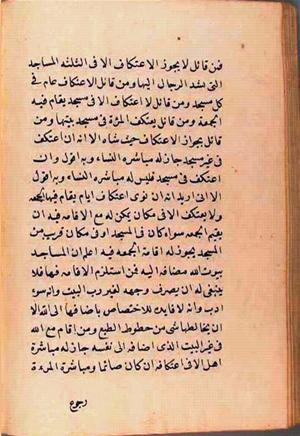 فمن قائل لا يجوز الاعتكاف الا فى الثلثه المساجد
التى تشد الرحال اليها ومن قائل الاعتكاف عام فى
كل مسجد ومن قائل لا اعتكاف الا فى مسجد يقام فيه
الجمعة ومن قائل يعتكف المرٔة فى مسجد بيتها ومن
قائل بجواز الاعتكاف حيث شاء الا انه ان اعتكف
فى غير مسجد جاز له مباشرة النساء وبه اقول وان
اعتكف فى مسجد فليس له مباشرة النساء وبه اقول
الا انى اريد انه ان نوى اعتكاف ايام يقام فيها الجمعه
ولا يعتكف الا فى مكان يمكن له مع الاقامه فيه ان
يقيم الجمعه سواء كان فى المسجد او فى مكان قريب من
المسجد يجوز له اقامة الجمعه فيه اعلم ان المساجد
بيوت الله مضافه اليه فمن استلزم الاقامه فيها فلا
ينبغى له ان يصرف وجهه لغير رب البيت وانه سوء
ادب وانه لا فايده للاختصاص باضافتها الى الله الا
ان يخالطها شى من حظوظ الطبع ومن اقام مع الله
فى غير البيت الذى اضافه الى نفسه جاز له مباشرة
اهله الا فى اعتكافه ان كان صائما ومباشرة المرءة
رجوع